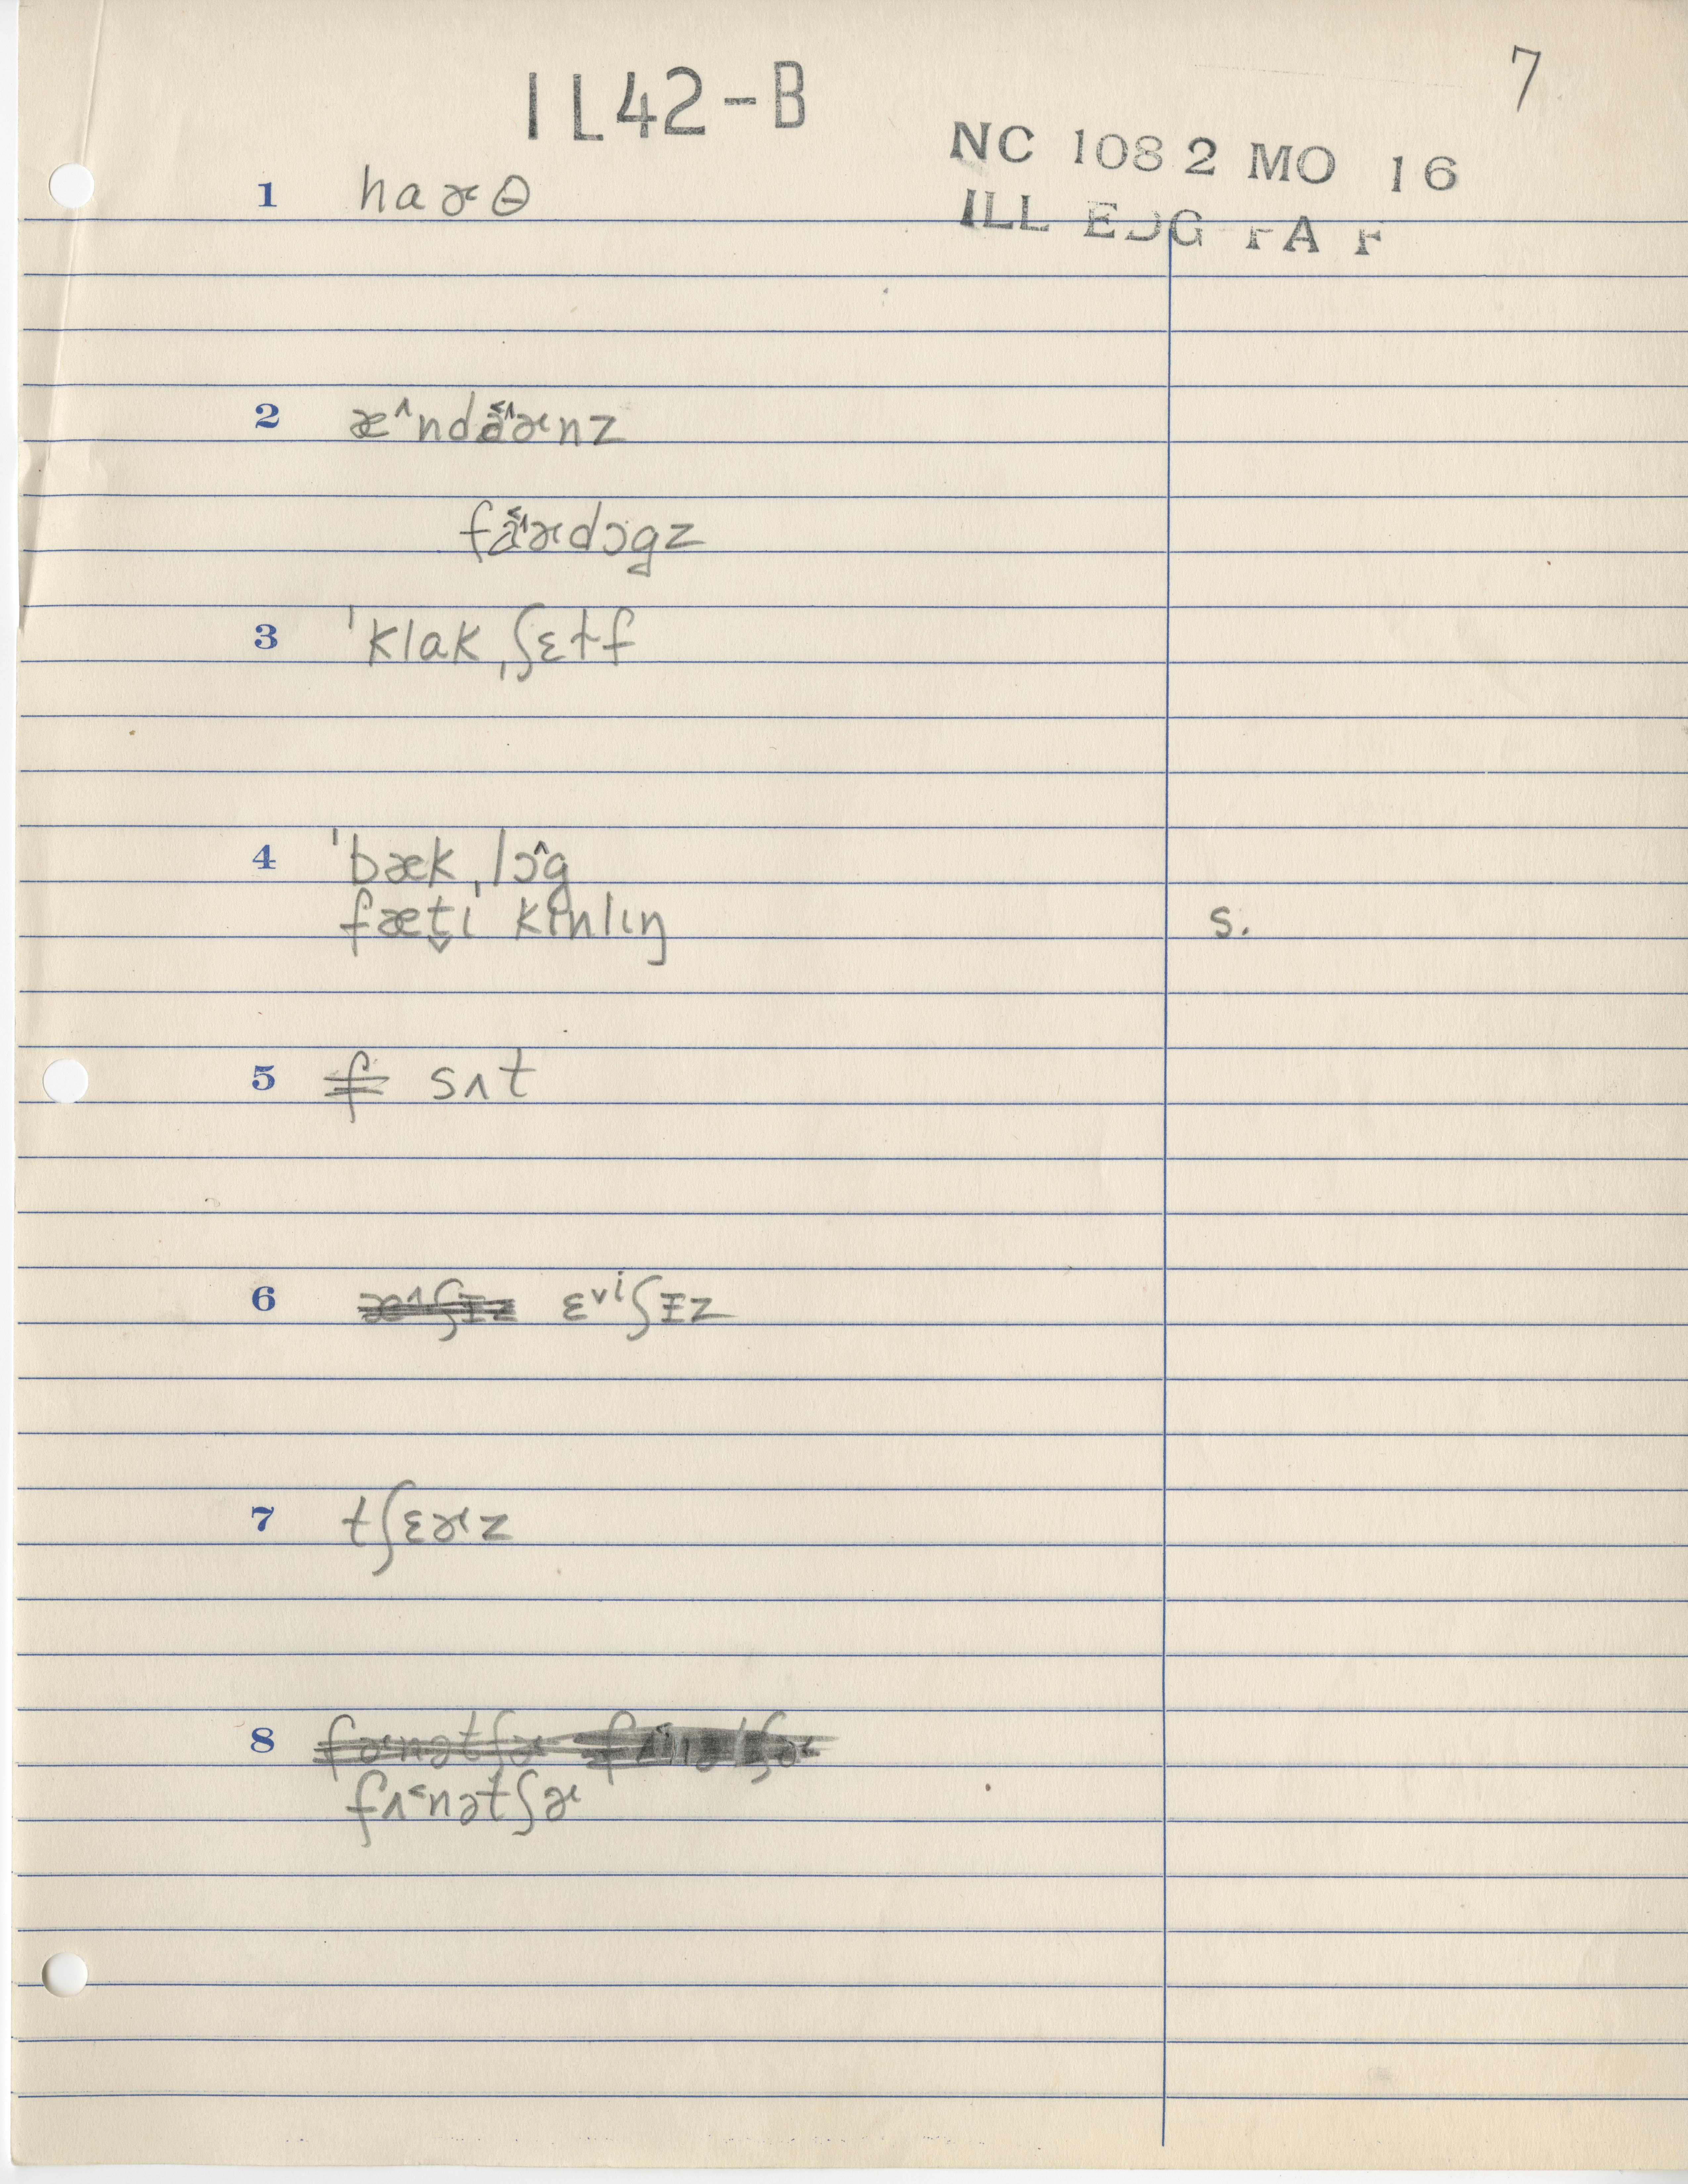 7
IL42-B
NC 1082 MO 16
ILL EDG FA F
1 haɚθ
2 æ^ndɑ̈˂^ɚnz
fɑ̈˂^ɚdɔgz
3 ˈklakˌʃɛtf
4 ˈbækˌlɔ^g
fæt̬i kɪnlɪŋ s.
5 f sʌt
6 æ^ʃɪz ɛ˅iʃɪz
7 tʃɛɚz
8 fɚnətʃɚ
fʌ˂nətʃɚ